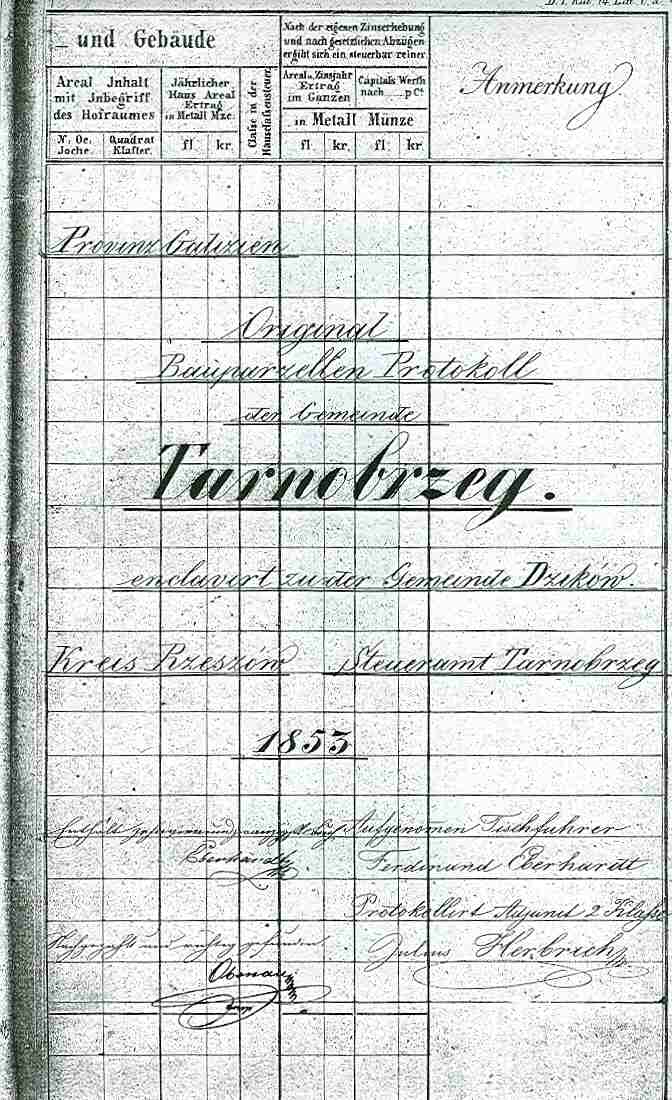 und Gebäude
Areal Jnhalt
mit Jnbegriff
des Hofraumes
N. Oe.
Joche.
Quadrat
Klafter.
Jährlicher
Haus Areal
Ertrag
in Metall Mze.
fl. kr.
Classe in der
Hausclassensteuer.
Nach der eigenen Zinserhebung
und nach gesetzlichen Abzügen
ergibt sich ein steuerbar reiner
Areal u. Zinsjahr
Ertrag
im Ganzen
Capitals Werth
nach .... p Ct.
in Metall Münze
fl. kr. fl. kr.
Anmerkung
Provinz Galizien
Original
Bauparzellen Protokoll
der Gemeinde
Tarnobrzeg.
enclavirt zu der Gemeinde Dzików.
Kreis Rzeszów Steueramt Tarnobrzeg
1853
Enthält
Eberhardt
Aufgenomen Tischfuhrer
Ferdinand Eberhardt
Protokollirt Adjunct 2 Klasse
Nachgezählt und richtig gefunden
Julius Herbrich